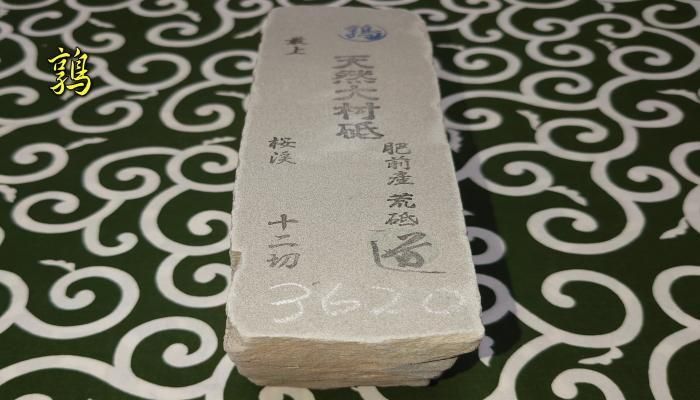 鶉
鶉
天然大村砥
最上
肥前産 荒砥
道
桜渓
十二切
3620